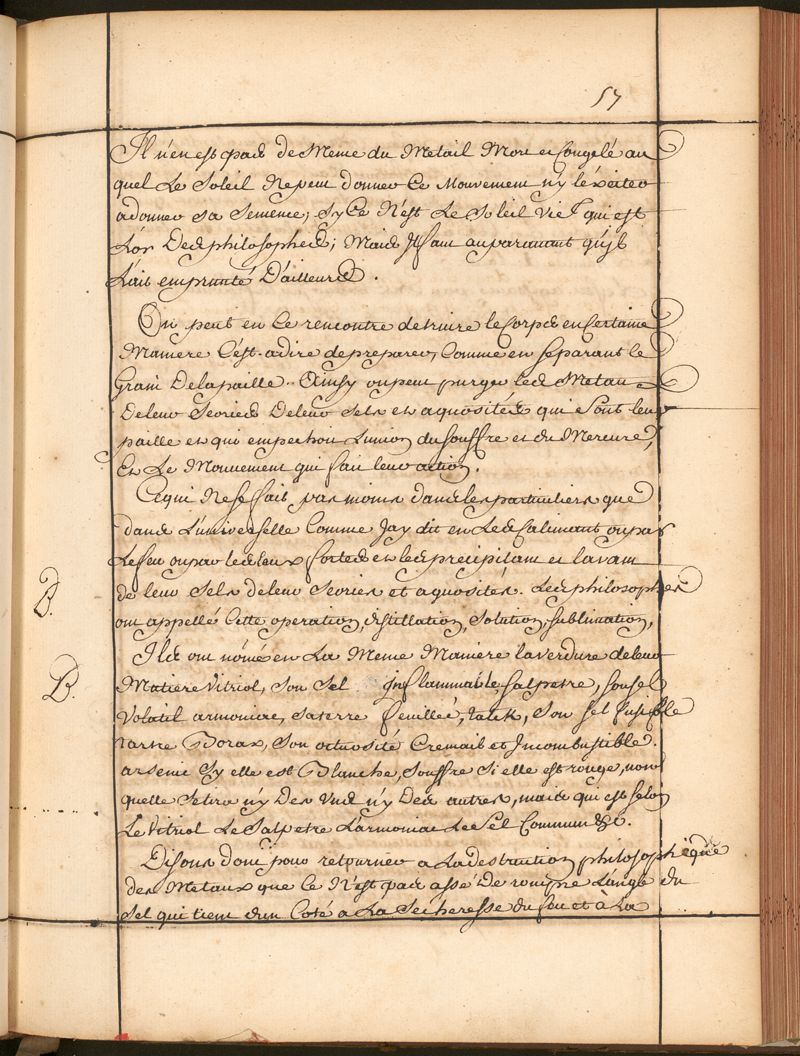 57
Il n'en est pas de Meme du Metail Mort et Congelé au
quel Le Soleil Ne peut donner Ce Mouvement n'y l'exciter
a donner sa Semence, sy Ce N'est Le Soleil Vif qui est
L'or Des philosophes; Mais Il faut auparavant qu'jl
L'ait emprunté D'ailleurs.
On peut en Ce rencontre detruire le Corps en Certaine
Maniere C'est-adire depreparer, Comme en Separant le
Grain Delapaille. Ainsy on peut purger les Metaux
Deleur Scories Deleur Sels et aquosités qui Sont leur
paille et qui empechent L'union du Souffre et du Mercure,
Et Le Mouvement qui fait leur action.
Cequi Nese fait pas moins dans les particuliers que
dans L'universelle Comme Jay dit en Les Calcinant ou par
Lefeu ou par les eaux fortes et les precipitant et lavant
de leur Sels deleur Scories et aquosités. Les philosophes
B.
ont appellé Cette operation, distillation, Solution, Sublimation,
Ils ont nõmé en La Meme Maniere la verdure deleur
B.
Matiere Vitriol, Son Sel Inflammable Salpetre, Son Sel
Volatil armoniac, Sa terre feuilleé, talck, Son Sel fusible
tartre Borax, Son onctuosité Cremail et Incombustible.
arsenic Sy elle est Blanche, Souffre Si elle est rouge, non
quelle Se tire n'y Des Uns n'y Des autres, mais qui est selon
Le Vitriol Le Salpetre L'armoniac Le Sel Commun &c.
Disons donc pour retourner a La destruction philosophique
des Metaux que Ce N'est pas assé De rompre L'angle du
Sel qui tient d'un Coté a La Secheresse du feu et à La